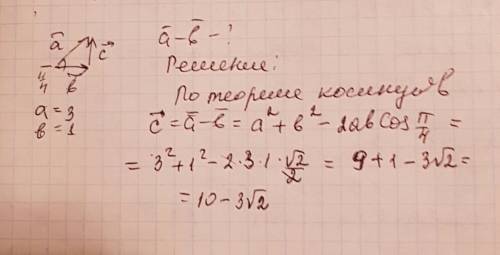 ā c⃗
ā-b̄-?
π/4 b̄
Решение:
a=3
По теореме косинусов
b=1
c⃗=ā-b̄=a²+b²-2ab cos π/4=
=3²+1²-2·3·1·√2/2=9+1-3√2=
=10-3√2